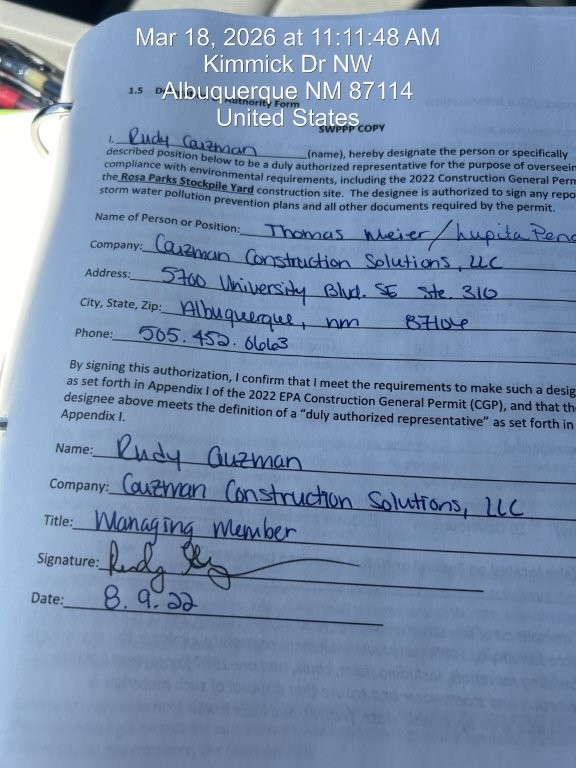 Mar 18, 2026 at 11:11:48 AM
Kimmick Dr NW
Albuquerque NM 87114
United States
1.5 Authority Form
SWPPP COPY
I, Rudy Guzman (name), hereby designate the person or specifically
described position below to be a duly authorized representative for the purpose of overseein
compliance with environmental requirements, including the 2022 Construction General Perm
the Rosa Parks Stockpile Yard construction site. The designee is authorized to sign any repo
storm water pollution prevention plans and all other documents required by the permit.
Name of Person or Position: Thomas Meier/Lupita Pena
Company: Guzman Construction Solutions, LLC
Address: 5700 University Blvd. SE Ste. 310
City, State, Zip: Albuquerque, nm 87106
Phone: 505.452.0663
By signing this authorization, I confirm that I meet the requirements to make such a desig
as set forth in Appendix I of the 2022 EPA Construction General Permit (CGP), and that the
designee above meets the definition of a "duly authorized representative" as set forth in
Appendix I.
Name: Rudy Guzman
Company: Guzman Construction Solutions, LLC
Title: Managing Member
Signature: Rudy
Date: 8.9.22